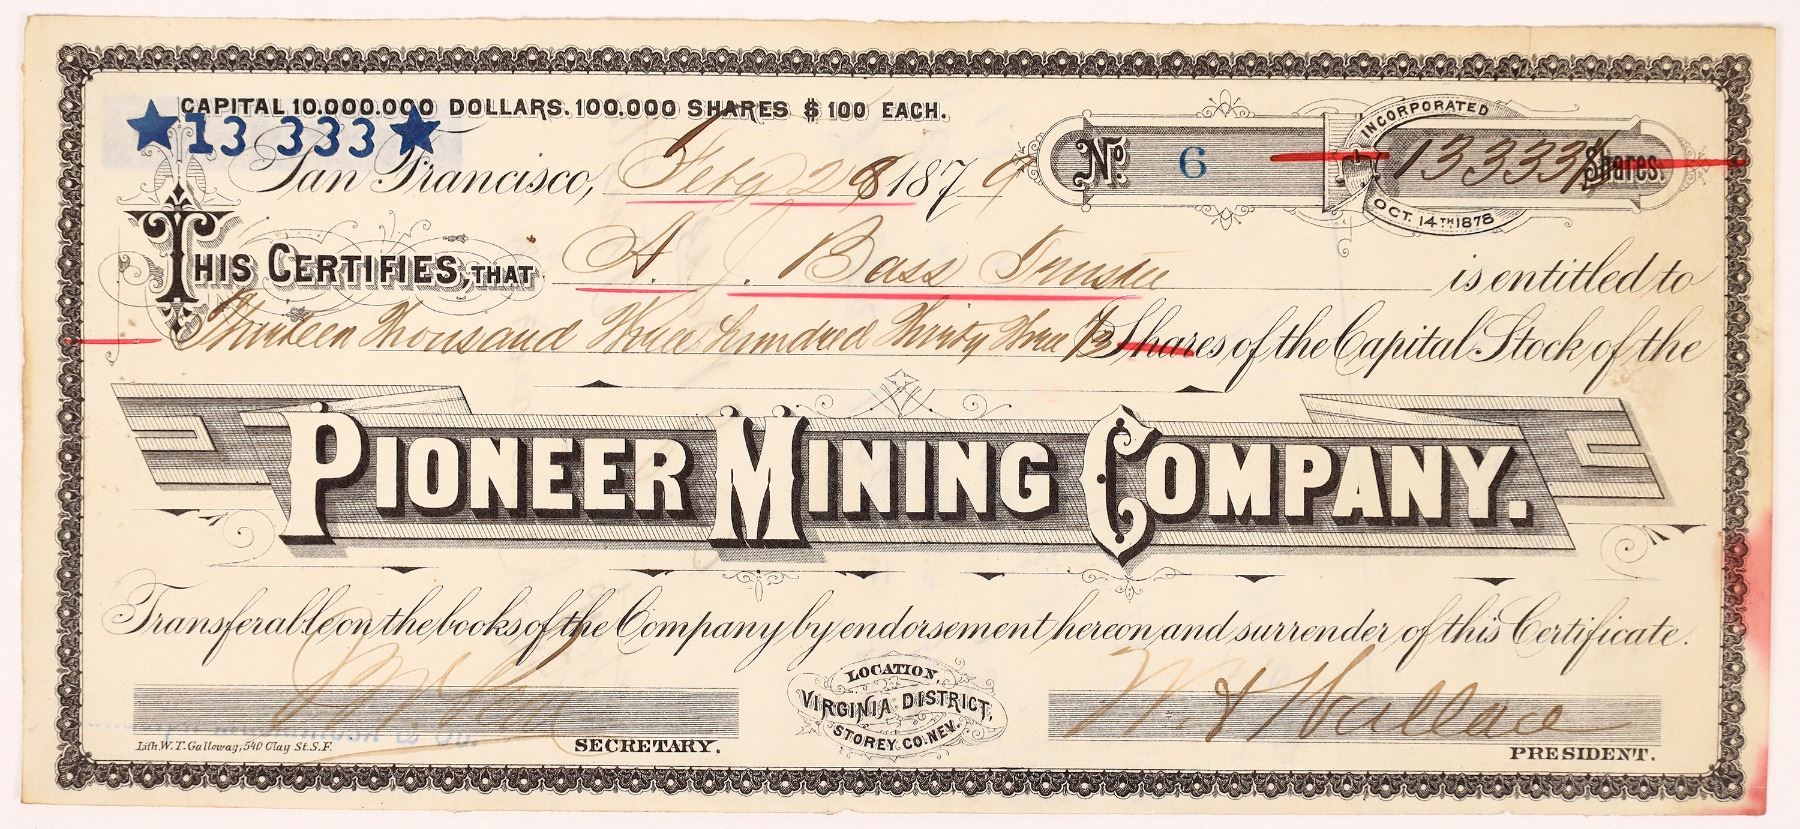 CAPITAL 10.000.000 DOLLARS. 100.000 SHARES $100 EACH.
★13 333★
San Francisco, Feby 28 1879
No. 6
INCORPORATED
13333⅓ Shares.
OCT. 14TH 1878
THIS CERTIFIES, THAT A. J. Bass Trustee is entitled to
Thirteen Thousand Three hundred Thirty Three ⅓ Shares of the Capital Stock of the
PIONEER MINING COMPANY.
Transferable on the books of the Company by endorsement hereon and surrender of this Certificate.
LOCATION,
VIRGINIA DISTRICT,
STOREY. CO. NEV.
Lith W. T. Galloway, 540 Clay St. S.F.
SECRETARY.
Wallace
PRESIDENT.